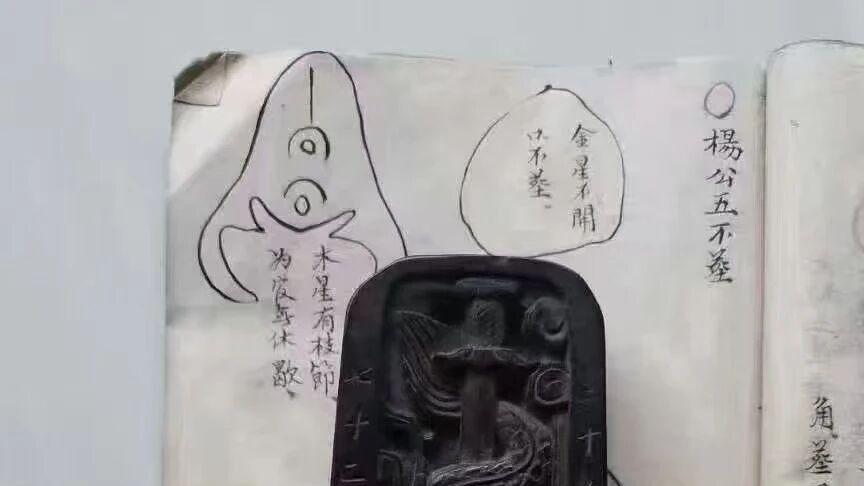 角塟
楊公五不塟
金星不開
口不塟。
木星有枝節
为休歇、
二十
七十二